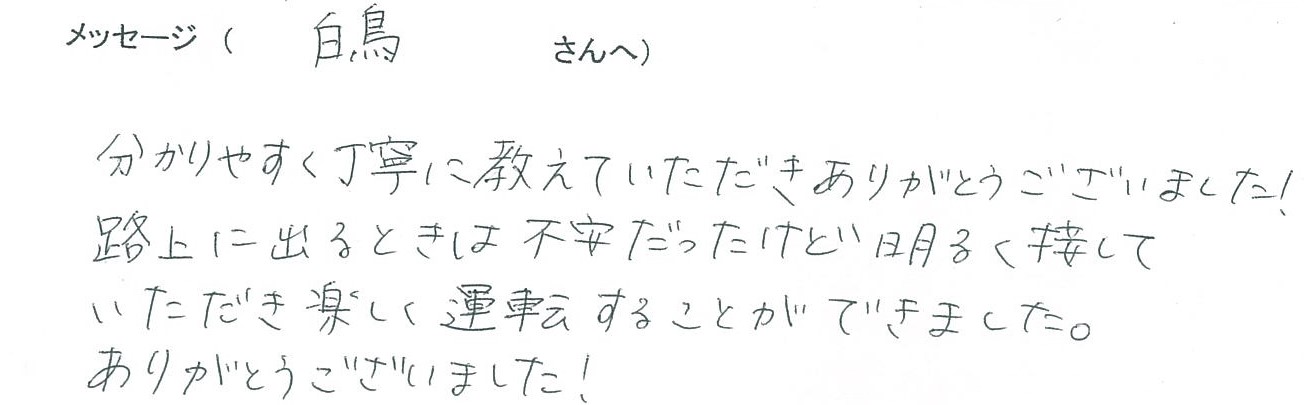 メッセージ（ 白鳥 さんへ）
分かりやすく丁寧に教えていただきありがとうございました!
路上に出るときは不安だったけど明るく接して
いただき楽しく運転することができました。
ありがとうございました!